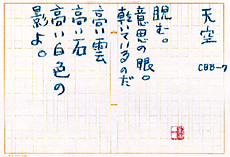 天空
CBB-7
睨む。
意思の眼。
乾いているのだ
高い雲
高い石
高い白色の
影よ。